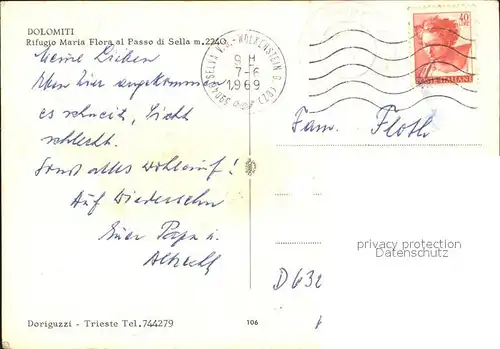 DOLOMITI
Rifugio Maria Flora al Passo di Sella m.2240
Meine Lieben
Eben hier angekommen
es schneit, Sicht
schlecht.
Sonst alles wohlauf!
Auf Wiedersehn
Euer Papa u.
Albrecht
Doriguzzi - Trieste Tel.744279
106
39048 SELVA V.G.-WOLKENSTEIN G. (BZ)
9 H
7-6
1969
40
POSTE ITALIANE
Fam. Floth
D 632
privacy protection
AnsichtskartenVersand.com